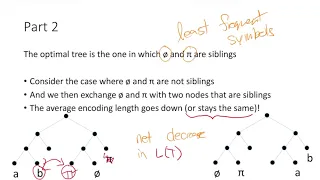 Part 2
least frequent
symbols
The optimal tree is the one in which ø and π are siblings
• Consider the case where ø and π are not siblings
• And we then exchange ø and π with two nodes that are siblings
• The average encoding length goes down (or stays the same)!
net decrease
in L(T)
b
a b π ø ø π a